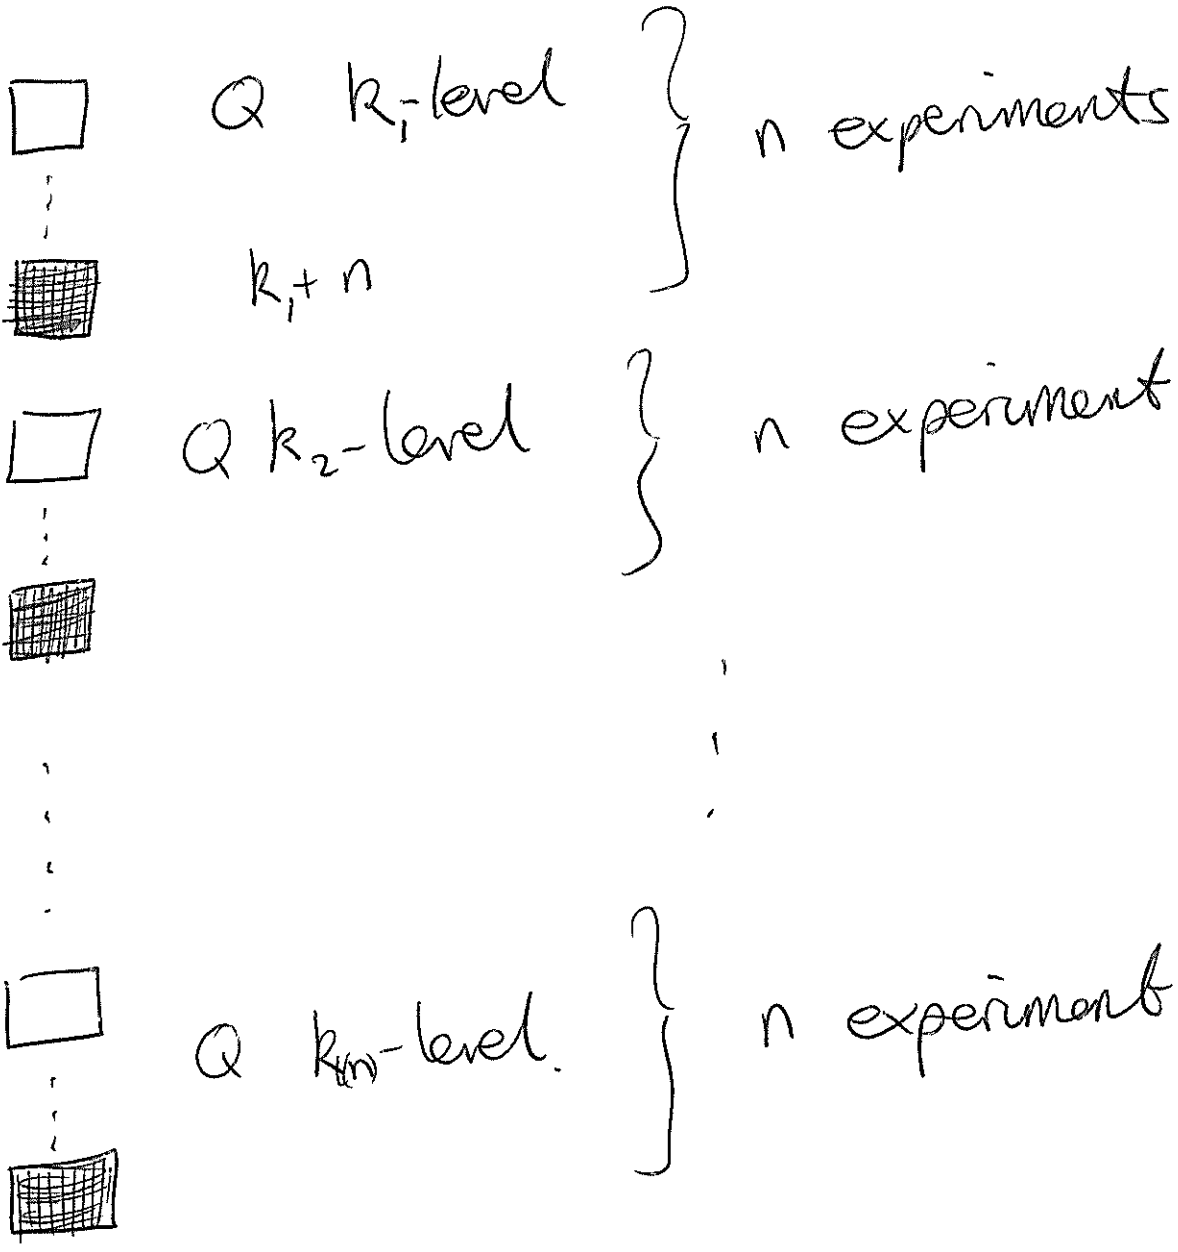 Q k₁-level n experiments
k₁+ n
Q k₂-level n experiment
Q kₜ₍ₙ₎-level. n experiment